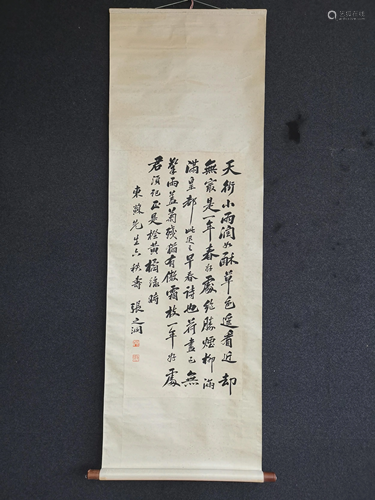 天街小雨润如酥草色遥看近却
無最是一年春好處絕勝煙柳滿
滿皇都此退之早春詩也荷盡已無
擎雨蓋菊殘猶有傲霜枝一年好處
君須記正是橙黃橘綠時
東坡先生六秩壽 張之洞